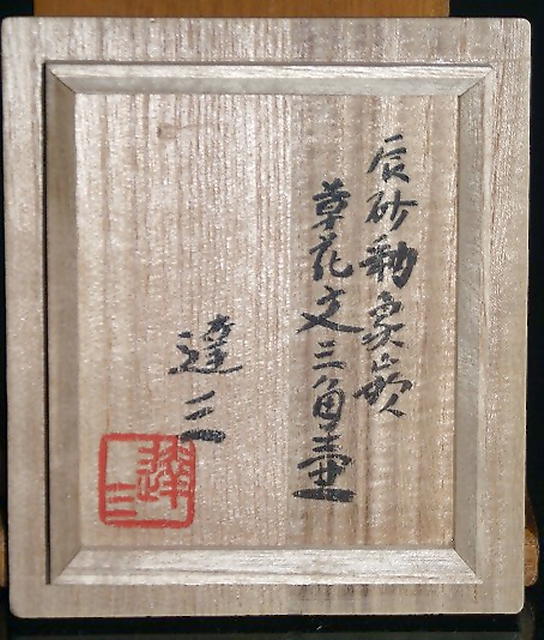 辰砂釉象嵌
草花文三角壷
達三
達三